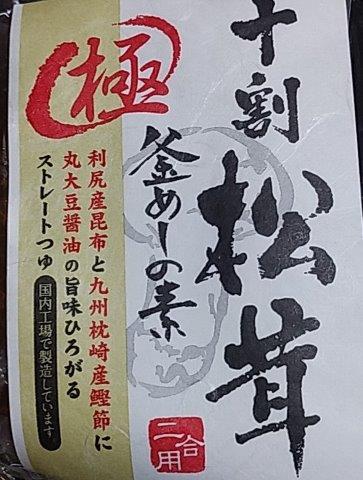 十割
松茸
釜めしの素
極
利尻産昆布と九州枕崎産鰹節に
丸大豆醤油の旨味ひろがる
ストレートつゆ
国内工場で製造しています
二合用